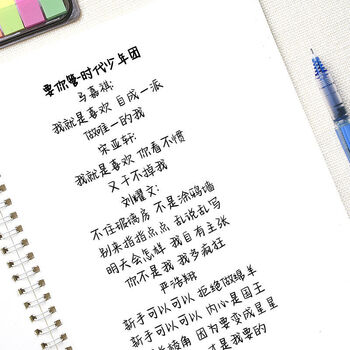 要你管-时代少年团
马嘉祺:
我就是喜欢 自成一派
做唯一的我
宋亚轩:
我就是喜欢 你看不惯
又干不掉我
刘耀文:
不住玻璃房 不是涂鸦墙
别来指指点点 乱说乱写
明天会怎样 我自有主张
你不是我 我多疯狂
严浩翔
新手可以可以 拒绝做绵羊
新手可以可以 内心是国王
棱角 因为要变成星星
才是我要的